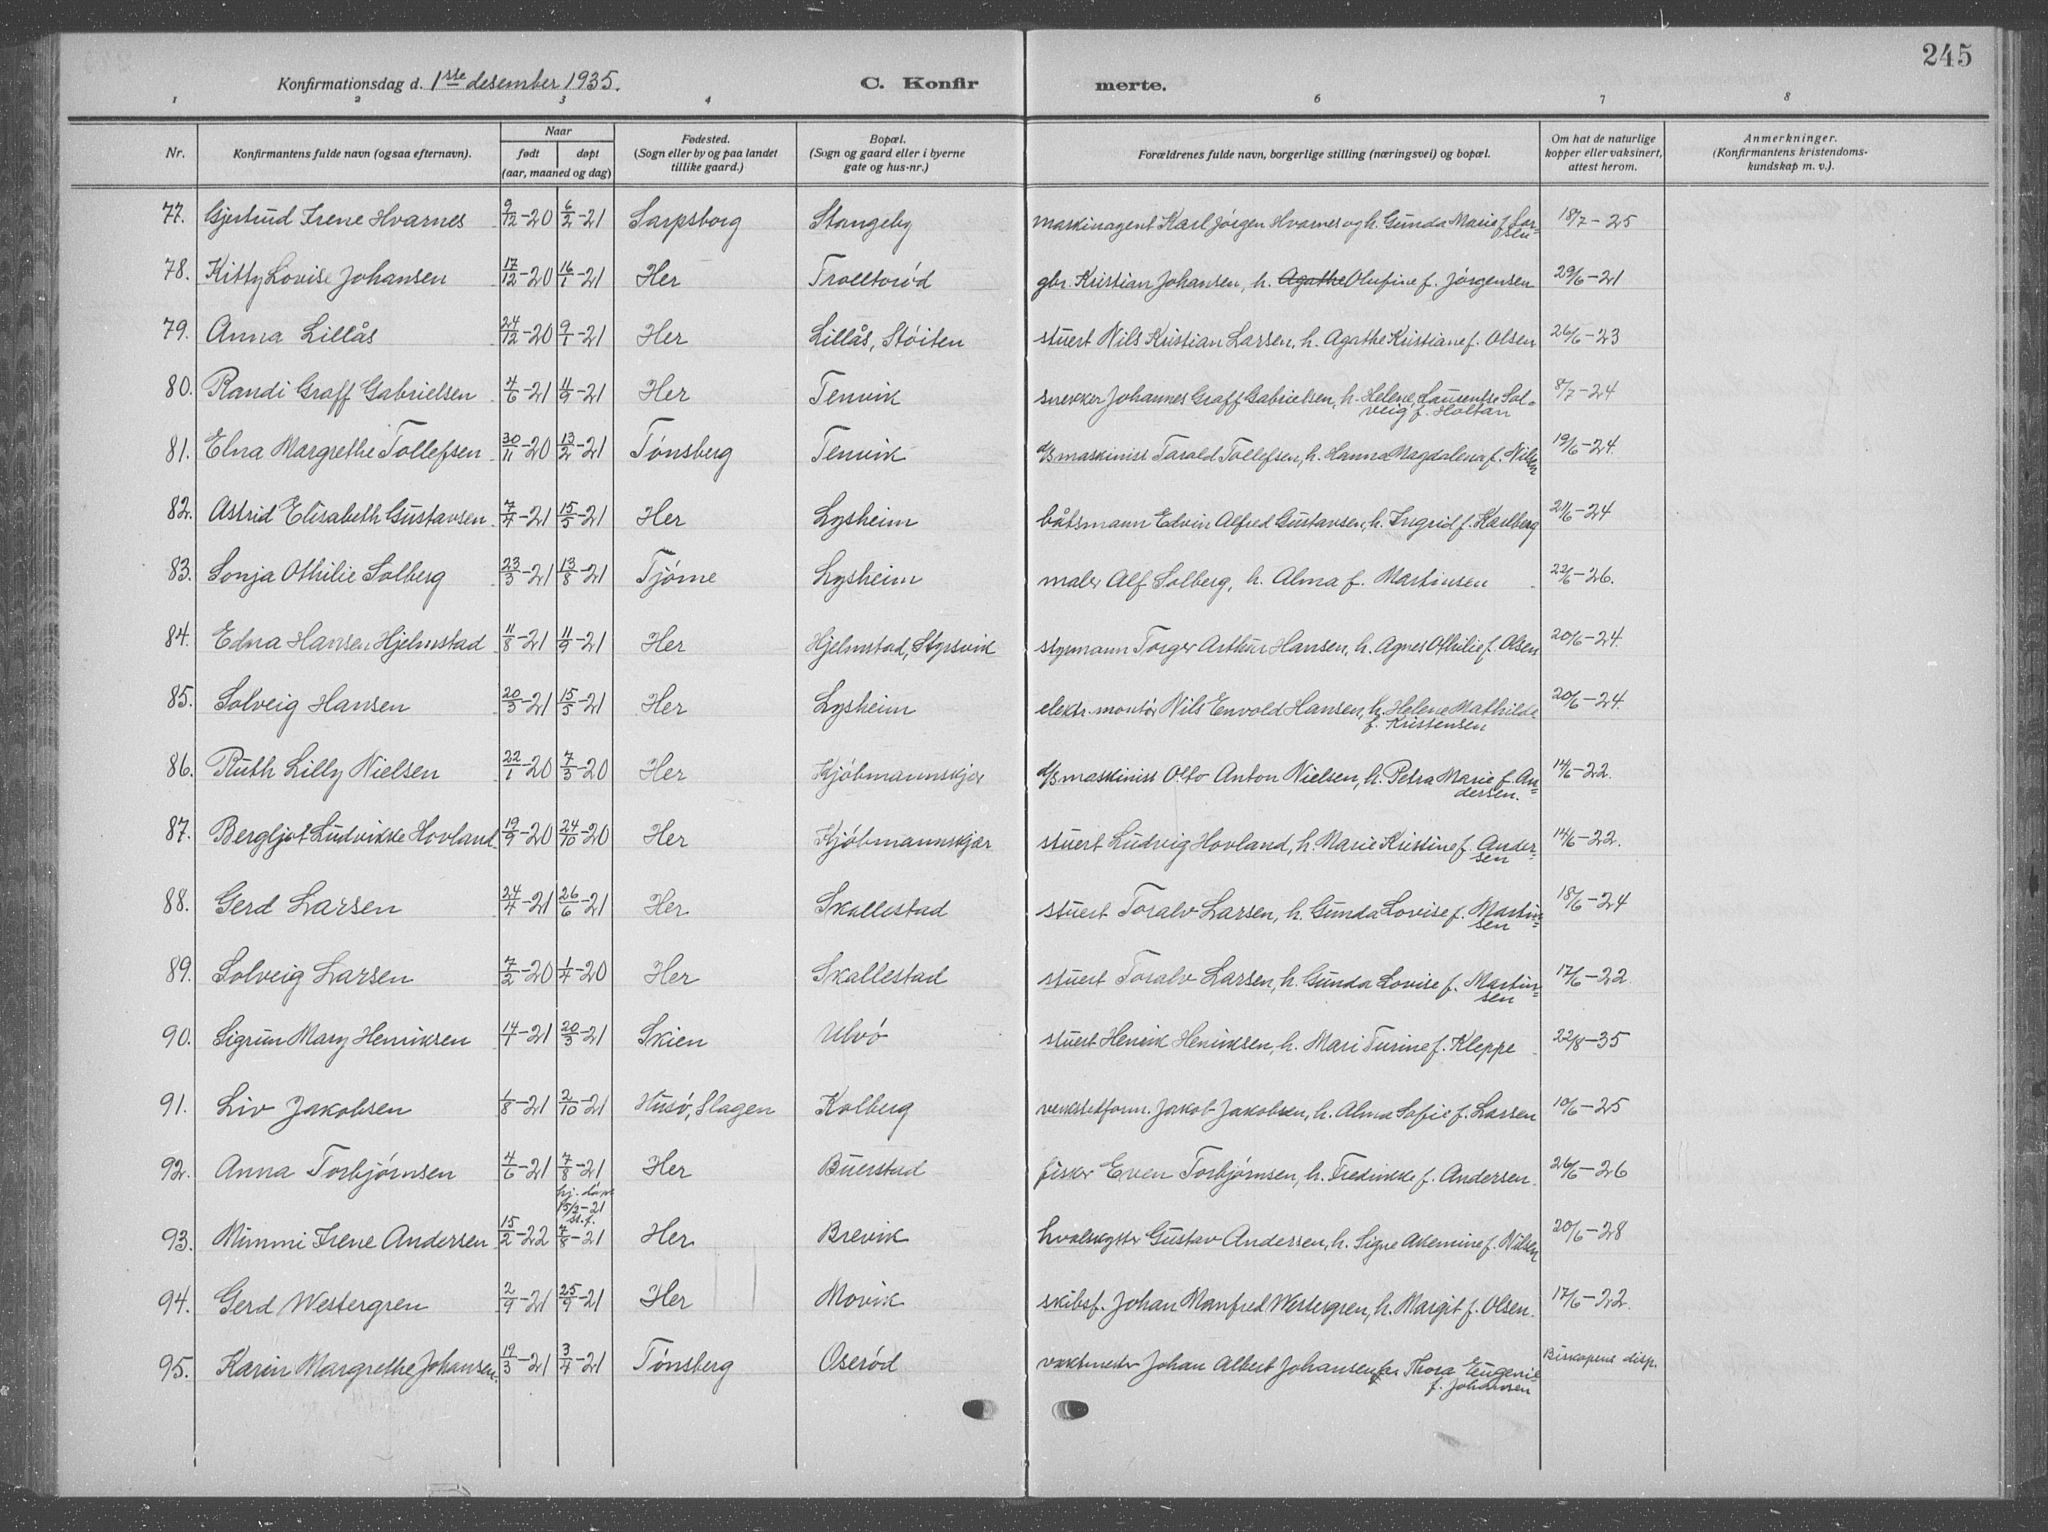 245
Konfirmationsdag d. 1ste desember 1935. C. Konfir merte.
1 2 3 4 6 7 8
Nr. Konfirmantens fulde navn (ogsaa efternavn). Naar født døpt (aar, maaned og dag) Fødested. (Sogn eller by og paa landet tillike gaard.) Bopæl. (Sogn og gaard eller i byerne gate og hus-nr.) Forældrenes fulde navn, borgerlige stilling (næringsvei) og bopæl. Om hat de naturlige kopper eller vaksinert, attest herom. Anmerkninger. (Konfirmantens kristendomskundskap m. v.).
77. Gjertrud Irene Hvarnes 9/12-20 6/2-21 Sarpsborg Stangeby maskinagent Karl Jørgen Hvarnes og h. Gunda Marie f. Larsen 18/7-25
78. Kitty Lovise Johansen 17/12-20 16/1-21 Her Trolltorød gbr. Kristian Johansen, h. Agathe Olufine f. Jørgensen 29/6-21
79. Anna Lillås 24/12-20 9/1-21 Her Lillås, Støiten stuert Nils Kristian Larsen, h. Agathe Kristiane f. Olsen 26/6-23
80. Randi Graff Gabrielsen 4/6-21 4/9-21 Her Tenvik snekker Johannes Graff Gabrielsen, h. Helene Laurentse Solveig f. Holtan 8/7-24
81. Elna Margrethe Tollefsen 30/11-20 13/2-21 Tønsberg Tenvik d/s maskinist Tarald Tollefsen, h. Hanna Magdalena f. Nilsen 19/6-24.
82. Astrid Elisabeth Gustavsen 7/4-21 15/5-21 Her Lysheim båtsmann Edvin Alfred Gustavsen, h. Ingrid f. Karlberg 21/6-24
83. Sonja Othilie Solberg 23/3-21 13/8-21 Tjøme Lysheim maler Alf Solberg, h. Alma f. Martinsen 22/6-26.
84. Edna Hansen Hjelmstad 11/8-21 11/9-21 Her Hjelmstad, Styrsvik styrmann Torger Arthur Hansen, h. Agnes Othilie f. Olsen 20/6-24.
85. Solveig Hansen 20/3-21 15/5-21 Her Lysheim elektr. montør Nils Envold Hansen, h. Helene Mathilde f. Kristensen 20/6-24.
86. Ruth Lilly Nielsen 22/1-20 7/3-20 Her Kjøbmannskjær d/s maskinist Otto Anton Nielsen, h. Petra Marie f. Andersen. 14/6-22.
87. Bergljot Ludvikke Hovland 19/9-20 24/10-20 Her Kjøbmannskjær stuert Ludvig Hovland, h. Marie Kristine f. Andersen 14/6-22.
88. Gerd Larsen 24/4-21 26/6-21 Her Skallestad stuert Toralv Larsen, h. Gunda Lovise f. Martinsen 18/6-24
89. Solveig Larsen 7/2-20 1/4-20 Her Skallestad stuert Toralv Larsen, h. Gunda Lovise f. Martinsen 17/6-22
90. Sigrun Mary Henriksen 14/1-21 20/3-21 Skien Ulvø stuert Henrik Henriksen, h. Mari Turine f. Kleppe 22/8-35
91. Liv Jakobsen 1/8-21 2/10-21 Husø, Slagen Kolberg verkstedform. Jakob Jakobsen, h. Alma Sofie f. Larsen 10/6-25
92. Anna Torbjørnsen 4/6-21 7/8-21 Her Buerstad fisker Even Torbjørnsen, h. Fredrikke f. Andersen 26/6-26
93. Mimmi Irene Andersen 15/2-22 hj. døpt 15/2-21 st. f. 7/8-21 Her Brevik hvalskytter Gustav Andersen, h. Signe Akemine f. Nilsen 20/6-28
94. Gerd Westergren 2/9-21 25/9-21 Her Movik skibsf. Johan Manfred Westergren, h. Margit f. Olsen. 17/6-22.
95. Karin Margrethe Johansen. 19/3-21 3/4-21 Tønsberg Oserød vaktmester Johan Albert Johansen, h. Thora Eugenie f. Johansen Biskopens disp.